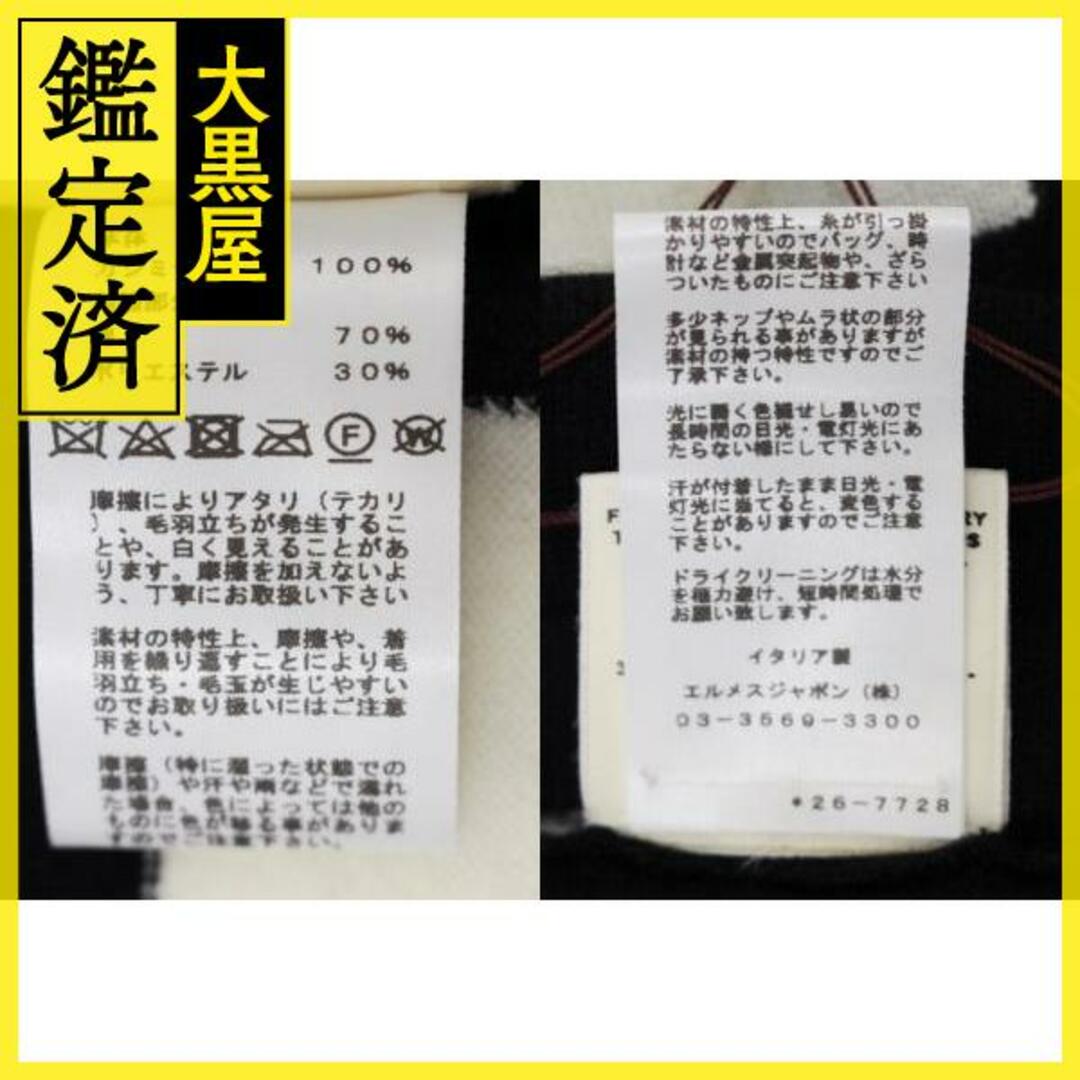 鑑定済
大黒屋
100%
70%
ポリエステル 30%
F
W
摩擦によりアタリ（テカリ
）、毛羽立ちが発生するこ
とや、白く見えることがあ
ります。摩擦を加えないよ
う、丁寧にお取扱い下さい
素材の特性上、摩擦や、着
用を繰り返すことにより毛
羽立ち・毛玉が生じやすい
のでお取り扱いにはご注意
下さい。
摩擦（特に湿った状態での
摩擦）や汗や雨などで濡れ
た場合、色によっては他の
ものに色が移る事がありま
すのでご注意下さい。
素材の特性上、糸が引っ掛
かりやすいのでバッグ、時
計など金属突起物や、ざら
ついたものにご注意下さい
多少ネップやムラ状の部分
が見られる事がありますが
素材の持つ特性ですのでご
了承下さい。
光に弱く色褪せし易いので
長時間の日光・電灯光にあ
たらない様にして下さい。
汗が付着したまま日光・電
灯光に当てると、変色する
ことがありますのでご注意
下さい。
ドライクリーニングは水分
を極力避け、短時間処理で
お願い致します。
イタリア製
エルメスジャポン（株）
03-3569-3300
*26-7728